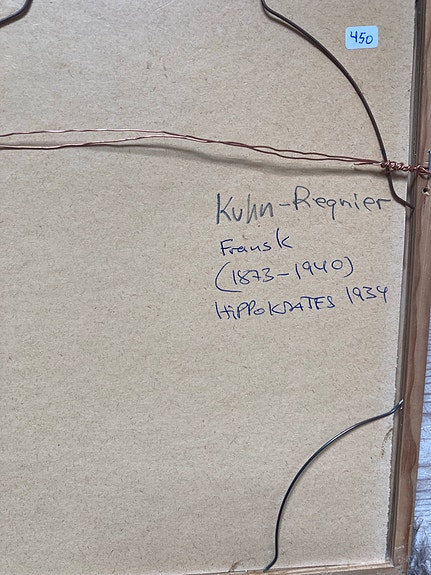 450
Kuhn-Regnier
Fransk
(1873-1940)
HiPPOKRATES 1934